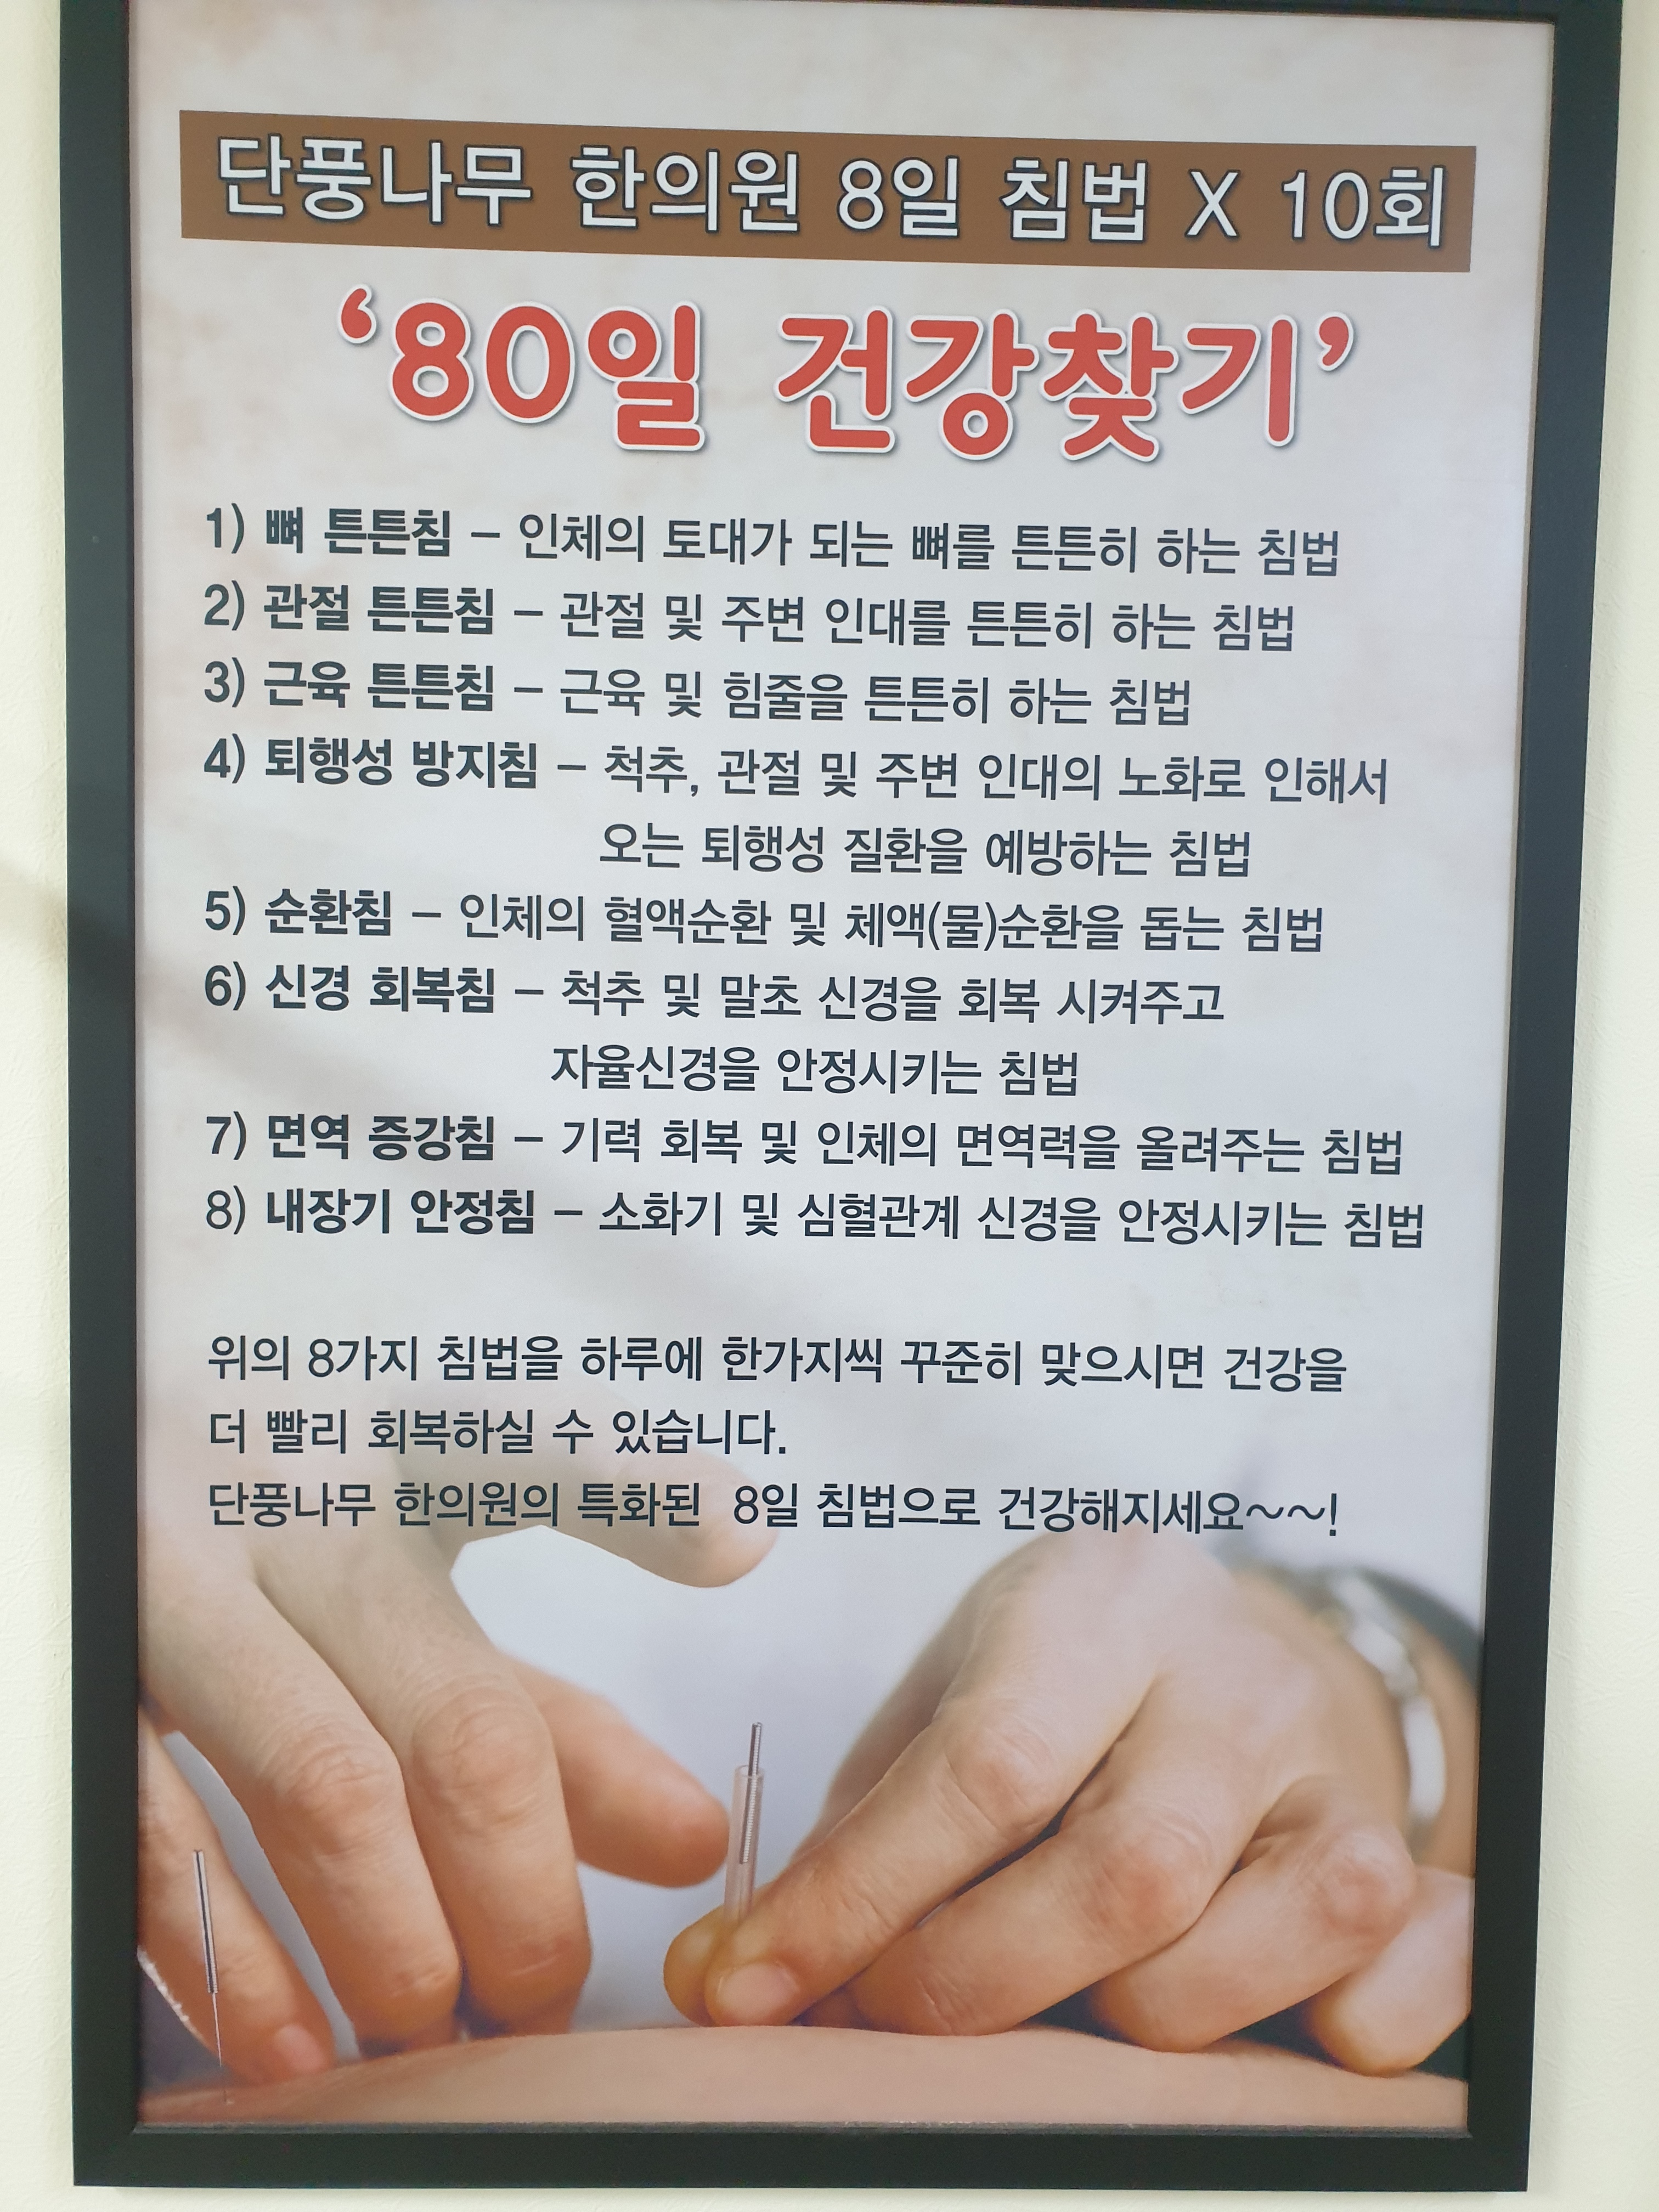 단풍나무 한의원 8일 침법 X 10회
‘80일 건강찾기’
1) 뼈 튼튼침 – 인체의 토대가 되는 뼈를 튼튼히 하는 침법
2) 관절 튼튼침 – 관절 및 주변 인대를 튼튼히 하는 침법
3) 근육 튼튼침 – 근육 및 힘줄을 튼튼히 하는 침법
4) 퇴행성 방지침 – 척추, 관절 및 주변 인대의 노화로 인해서
오는 퇴행성 질환을 예방하는 침법
5) 순환침 – 인체의 혈액순환 및 체액(물)순환을 돕는 침법
6) 신경 회복침 – 척추 및 말초 신경을 회복 시켜주고
자율신경을 안정시키는 침법
7) 면역 증강침 – 기력 회복 및 인체의 면역력을 올려주는 침법
8) 내장기 안정침 – 소화기 및 심혈관계 신경을 안정시키는 침법
위의 8가지 침법을 하루에 한가지씩 꾸준히 맞으시면 건강을
더 빨리 회복하실 수 있습니다.
단풍나무 한의원의 특화된 8일 침법으로 건강해지세요~~!